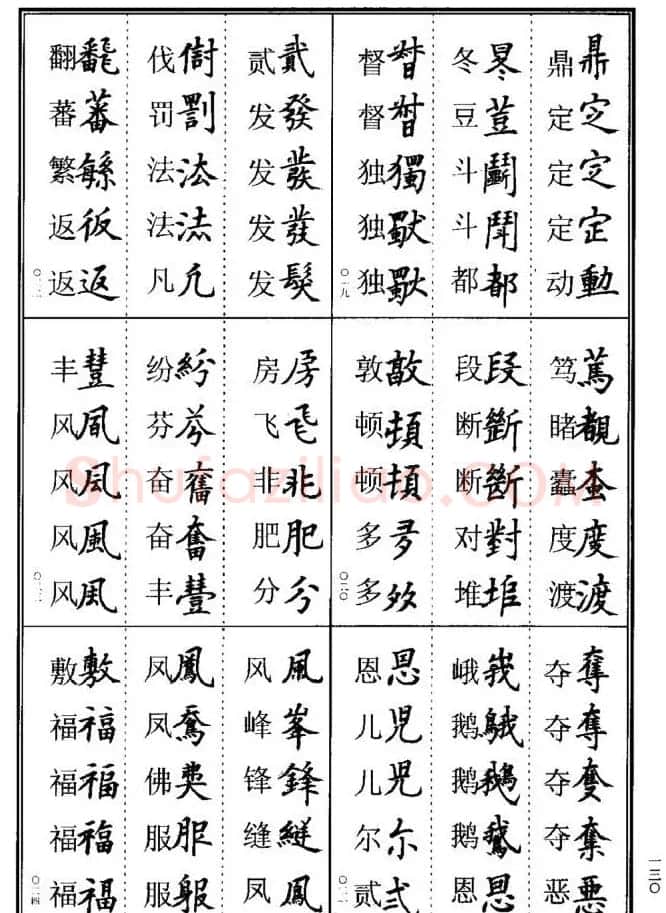 鼎鼎 定㝎 定㝎 定定 动動
冬 豆荳 斗鬭 斗鬥 都都
督督 督督 独獨 独 独
〇一九
笃篤 睹覩 蠹 度度 渡渡
段段 断斷 断斷 对對 堆
敦 顿頓 顿頓 多 多
〇二〇
夺奪 夺奪 夺 夺 恶悪
峨峩 鹅 鹅鵝 鹅 恩恩
恩恩 儿児 儿 尔尔 贰弍
〇二一
贰貳 发發 发 发發 发髮
伐 罚罰 法法 法 凡凡
翻 蕃蕃 繁 返仮 返返
〇二二
房房 飞飞 非非 肥肥 分分
纷紛 芬 奋奮 奋奮 丰豐
丰豐 风 风 风風 风
〇二三
风風 峰峯 锋鋒 缝縫 凤鳳
凤鳳 凤 佛 服服 服
敷敷 福福 福福 福福 福福
〇二四
一三〇
Shufaziliao.COM